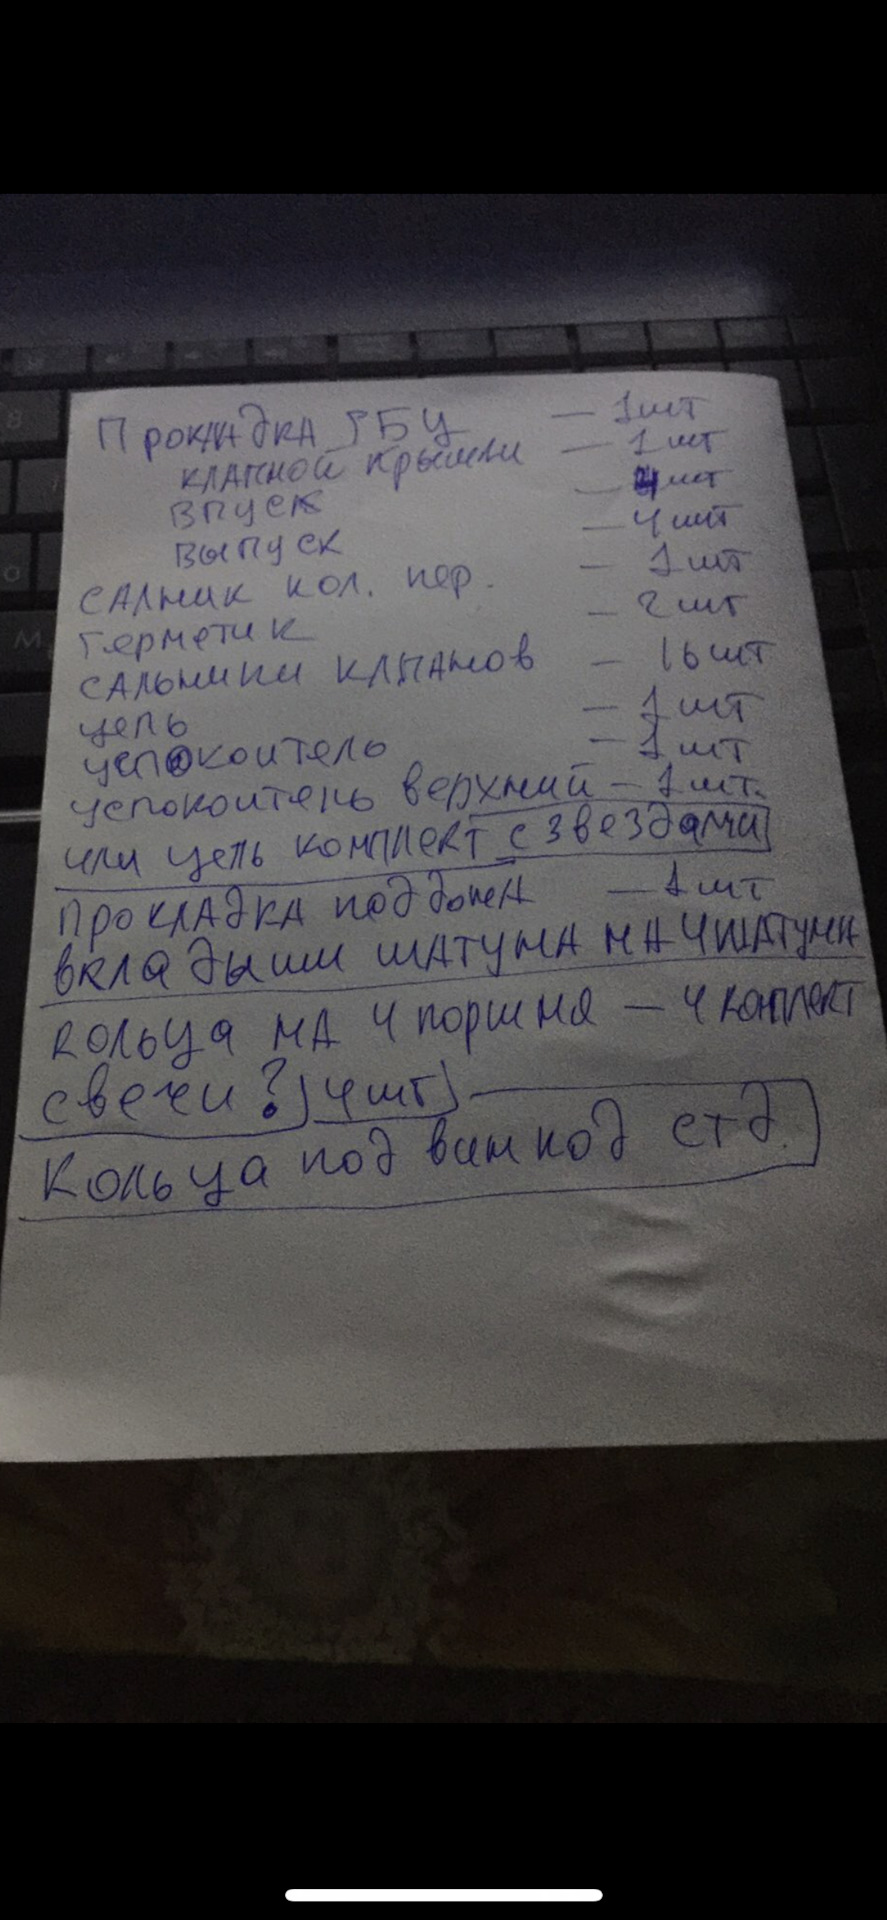 Прокладка ГБЦ — 1шт
клапной крышки — 1 шт
впуск — 4шт
выпуск — 4 шт
сальник кол. пер. — 1 шт
герметик — 2 шт
сальники клпанов — 16 шт
цепь — 1 шт
успокоитель — 1 шт
успокоитель верхний — 1 шт.
или цепь комплект с звездами
прокладка поддона — 1 шт
вкладыши шатуна на 4 шатуна
кольца на 4 поршня — 4 комплект
свечи? 4 шт
Кольца под винкод стд.